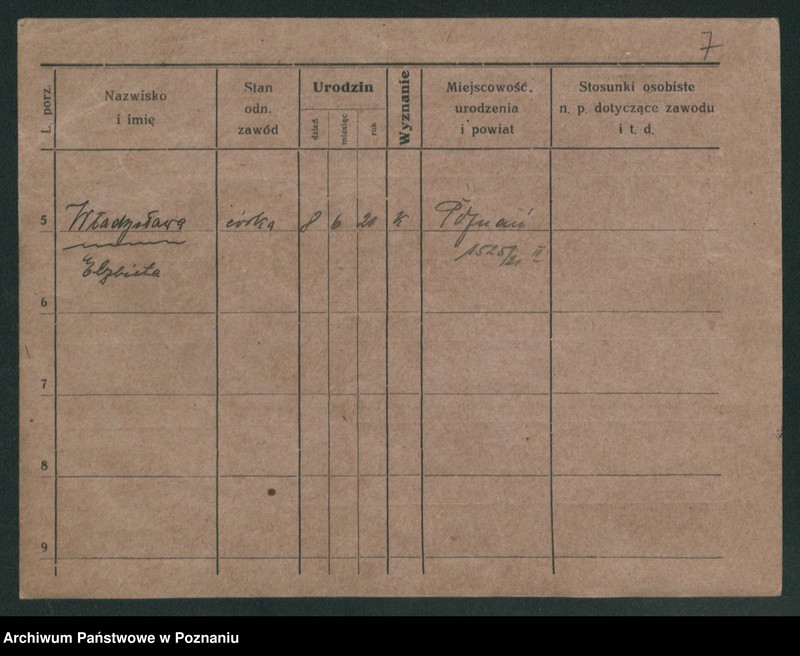 7
L. porz.
Nazwisko
i imię
Stan
odn.
zawód
Urodzin
dzień
miesiąc
rok
Wyznanie
Miejscowość,
urodzenia
i powiat
Stosunki osobiste
n. p. dotyczące zawodu
i t. d.
5 Władysława córka 8 6 21 k Poznań
Elżbieta 1525/21 II
6
7
8
9
Archiwum Państwowe w Poznaniu